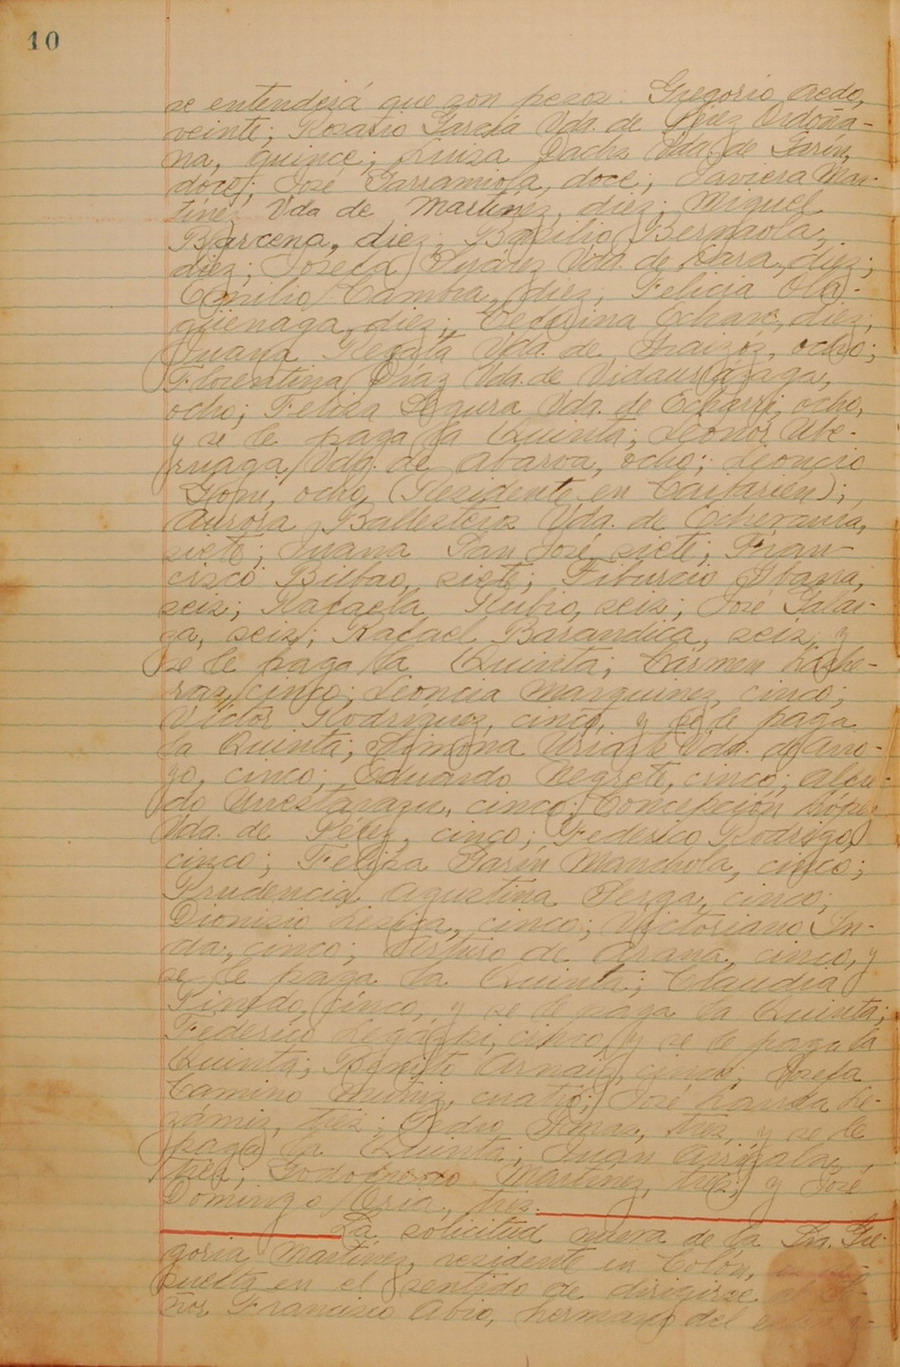 10
se entenderá que son pesos. Gregorio Aedo,
veinte; Rosario García Vda. de Pérez Ordoña-
na, quince; Luisa Dachs Vda. de Garín,
doce; José Garramiola, doce; Javiera Mar-
tínez Vda de Martínez, diez; Miguel
Bárcena, diez; Basilio Bernaola,
diez; Josefa Suárez Vda. de Lara, diez;
Emilio Cambra, diez, Felicia Ola-
güenaga, diez; Ceferina Echave, diez,
Juana Regata Vda. de Araizoz, ocho;
Florentina Díaz Vda. de Vidaurrázaga,
ocho; Felisa Segura Vda. de Echarri, ocho,
y se le paga la Quinta; Leonor Ube-
ruaga Vda. de Abaroa, ocho; Leoncio
Goñi, ocho (Residente en Caibarien);
Aurora Ballesteros Vda. de Echevarría,
siete; Juana San José, siete; Fran-
cisco Bilbao, siete; Tiburcio Ibarra,
seis; Rafaela Rubio, seis; José Galar-
ga, seis; Rafael Barandica, seis, y
se le paga la Quinta; Cármen
cinco; Leoncia Marquinez, cinco;
Víctor Rodríguez, cinco, y se le paga
la Quinta; Simona Uriarte Vda. de Arro-
yo, cinco; Eduardo Negrete, cinco; Alfre-
do Urrestarazu, cinco; Concepción López
Vda. de Pérez, cinco; Federico Rodrigo,
cinco; Felisa Garín Manchola, cinco;
Prudencia Agustina Serga, cinco;
Dionisio cinco; Victoriano In-
da, cinco; Arturo de Arana, cinco, y
se le paga la Quinta; Claudia
Pinedo, cinco, y se le paga la Quinta;
Federico Legarbi, cinco, y se le paga la
Quinta; Benito Arnaiz, cinco; Josefa
Camino Muñiz, cuatro; José Landa Le-
zámiz, tres; Pedro tres, y se le
paga la Quinta; Juan
tres; Godofredo Martínez, tres; y José
Domingo Oria, tres.
La solicitud nueva de la Sra. Gre-
goria Martínez, residente en Colón,
puesta en el sentido de dirigirse al Se-
ñor Francisco Abio, hermano del